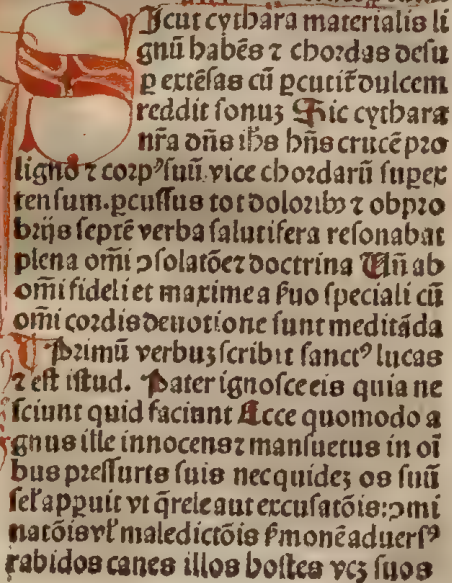 Sicut cythara materialis li
gnū habēs ⁊ chordas desu
ꝑ extēsas cū ꝑcutit᷑ dulcem
reddit sonuꝫ Sic cythara
nr̄a dn̄s ih̄s hn̄s crucē pro
ligno ⁊ corpꝰ suū vice chordarū superx
tensum. ꝑcussus tot doloribꝫ ⁊ obpro
brijs septē verba salutifera resonabat
plena om̄i ꝯsolatōe ⁊ doctrina Un̄ ab
om̄i fideli et maxime a s̄uo speciali cū
om̄i cordis deuotione sunt meditāda
Primū verbuꝫ scribit sanctꝰ lucas
⁊ est istud. Pater ignosce eis quia ne
sciunt quid faciunt Ecce quomodo a
gnus ille innocens ⁊ mansuetus in oī
bus pressuris suis nec quideꝫ os suū
sel̓ appuit vt q̄rele aut excusatōis: ꝯmi
natōis vl̓ maledictōis s̓monē aduersꝰ
rabidos canes illos hostes vcꝫ suos